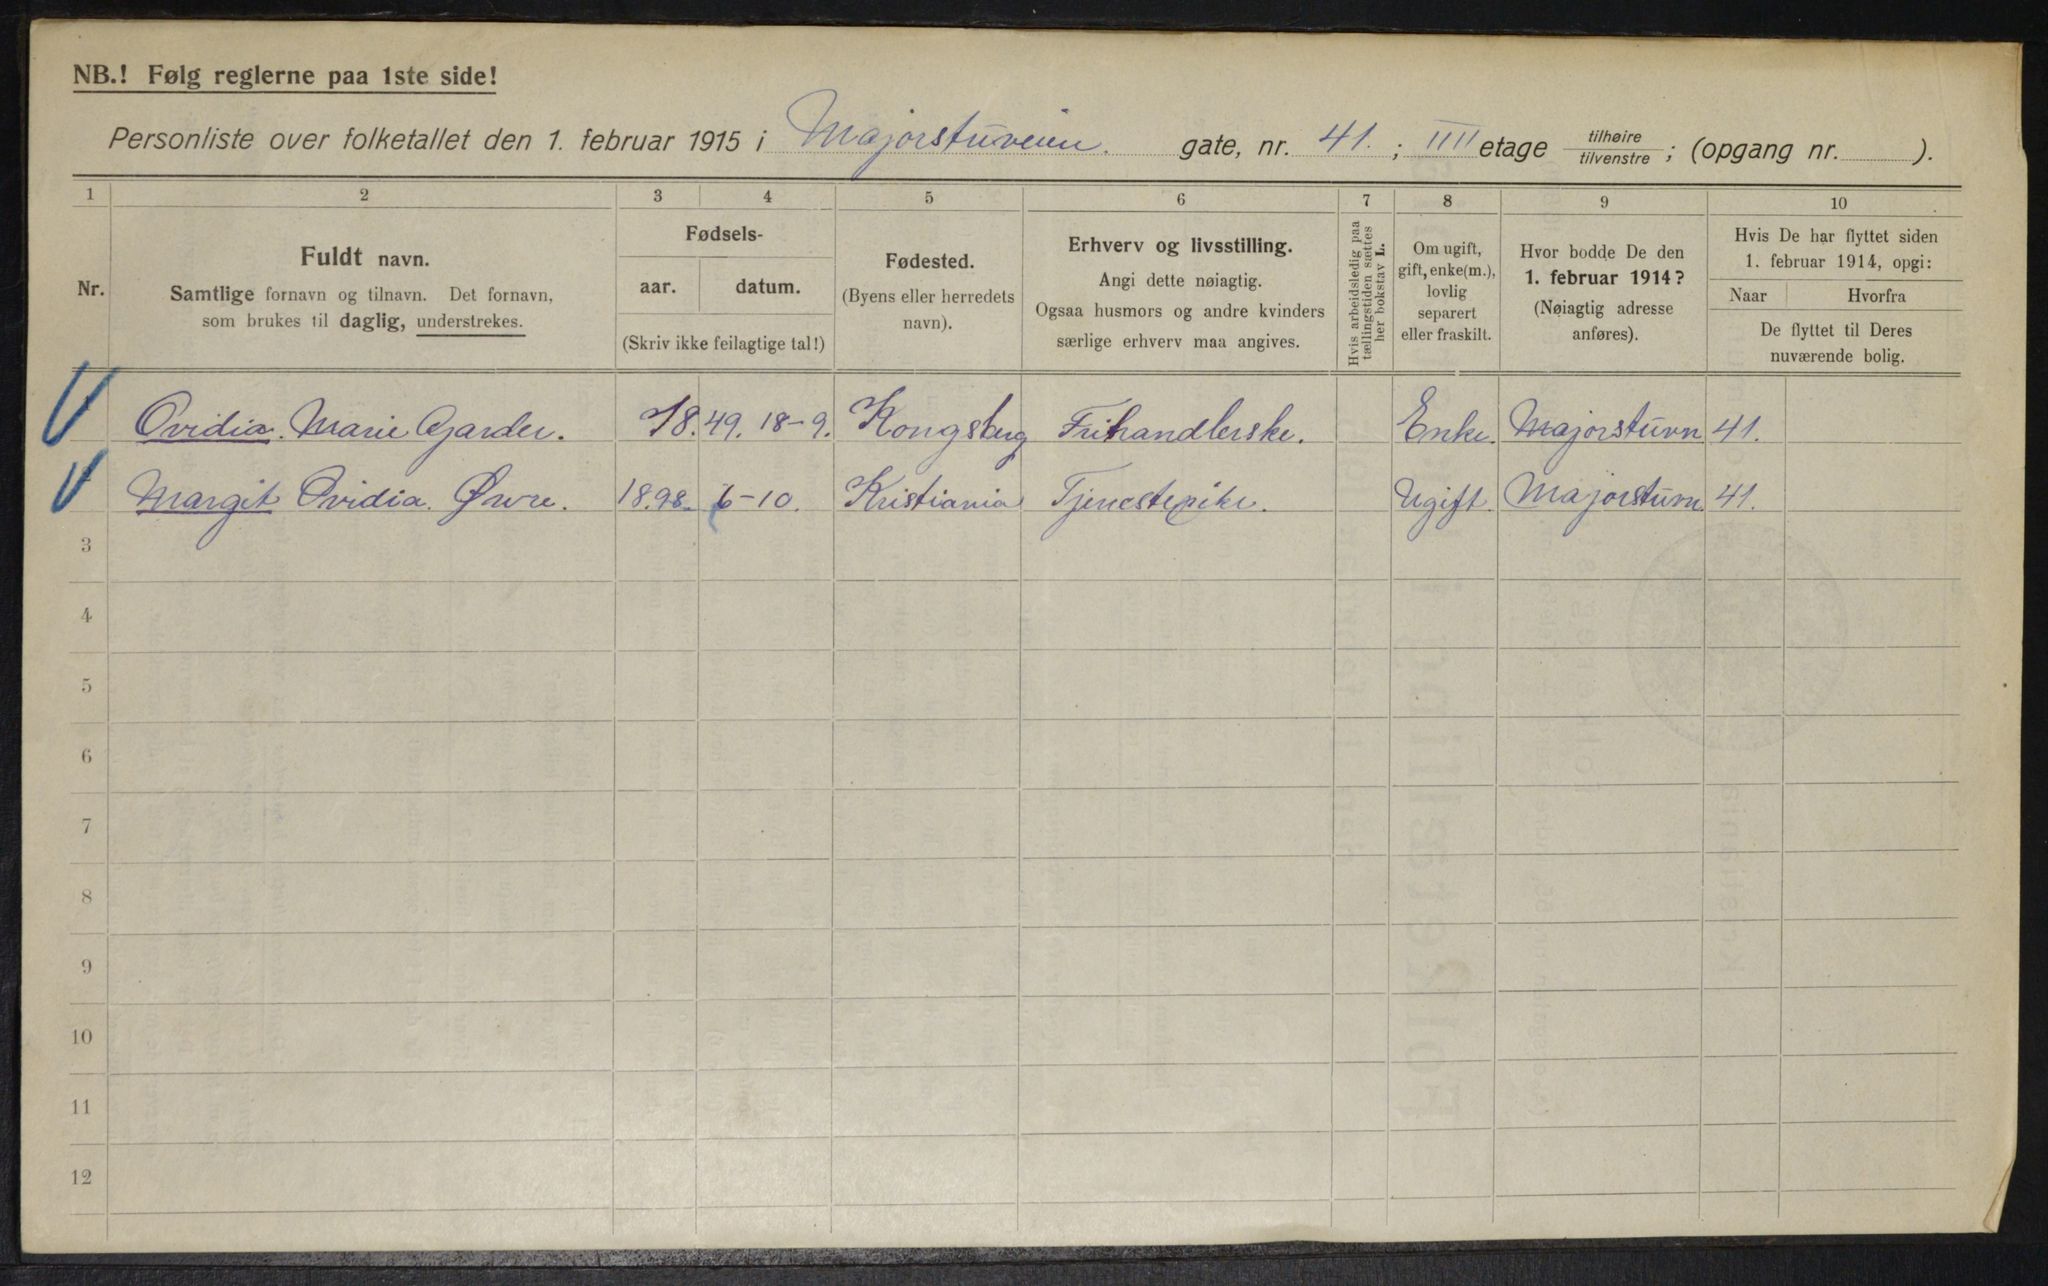 NB.! Følg reglerne paa 1ste side!
Personliste over folketallet den 1. februar 1915 i Majorstuveien. gate, nr. 41. ; IIII etage tilhøire tilvenstre ; (opgang nr. ).
1 2 3 4 5 6 7 8 9 10
Nr.
Fuldt navn.
Samtlige fornavn og tilnavn. Det fornavn,
som brukes til daglig, understrekes.
Fødsels-
aar. datum.
(Skriv ikke feilagtige tal!)
Fødested.
(Byens eller herredets
navn).
Erhverv og livsstilling.
Angi dette nøiagtig.
Ogsaa husmors og andre kvinders
særlige erhverv maa angives.
Hvis arbeidsledig paa
tællingstiden sættes
her bokstav L.
Om ugift,
gift, enke(m.),
lovlig
separert
eller fraskilt.
Hvor bodde De den
1. februar 1914?
(Nøiagtig adresse
anføres).
Hvis De har flyttet siden
1. februar 1914, opgi:
Naar Hvorfra
De flyttet til Deres
nuværende bolig.
Ovidia. Marie Garder. 18.49. 18-9. Kongsberg Frihandlerske. Enke. Majorstuvn 41.
Margit Ovidia. Øwre. 18.98. 6-10. Kristiania Tjenestepike. Ugift. Majorstuvn. 41.
3
4
5
6
7
8
9
10
11
12